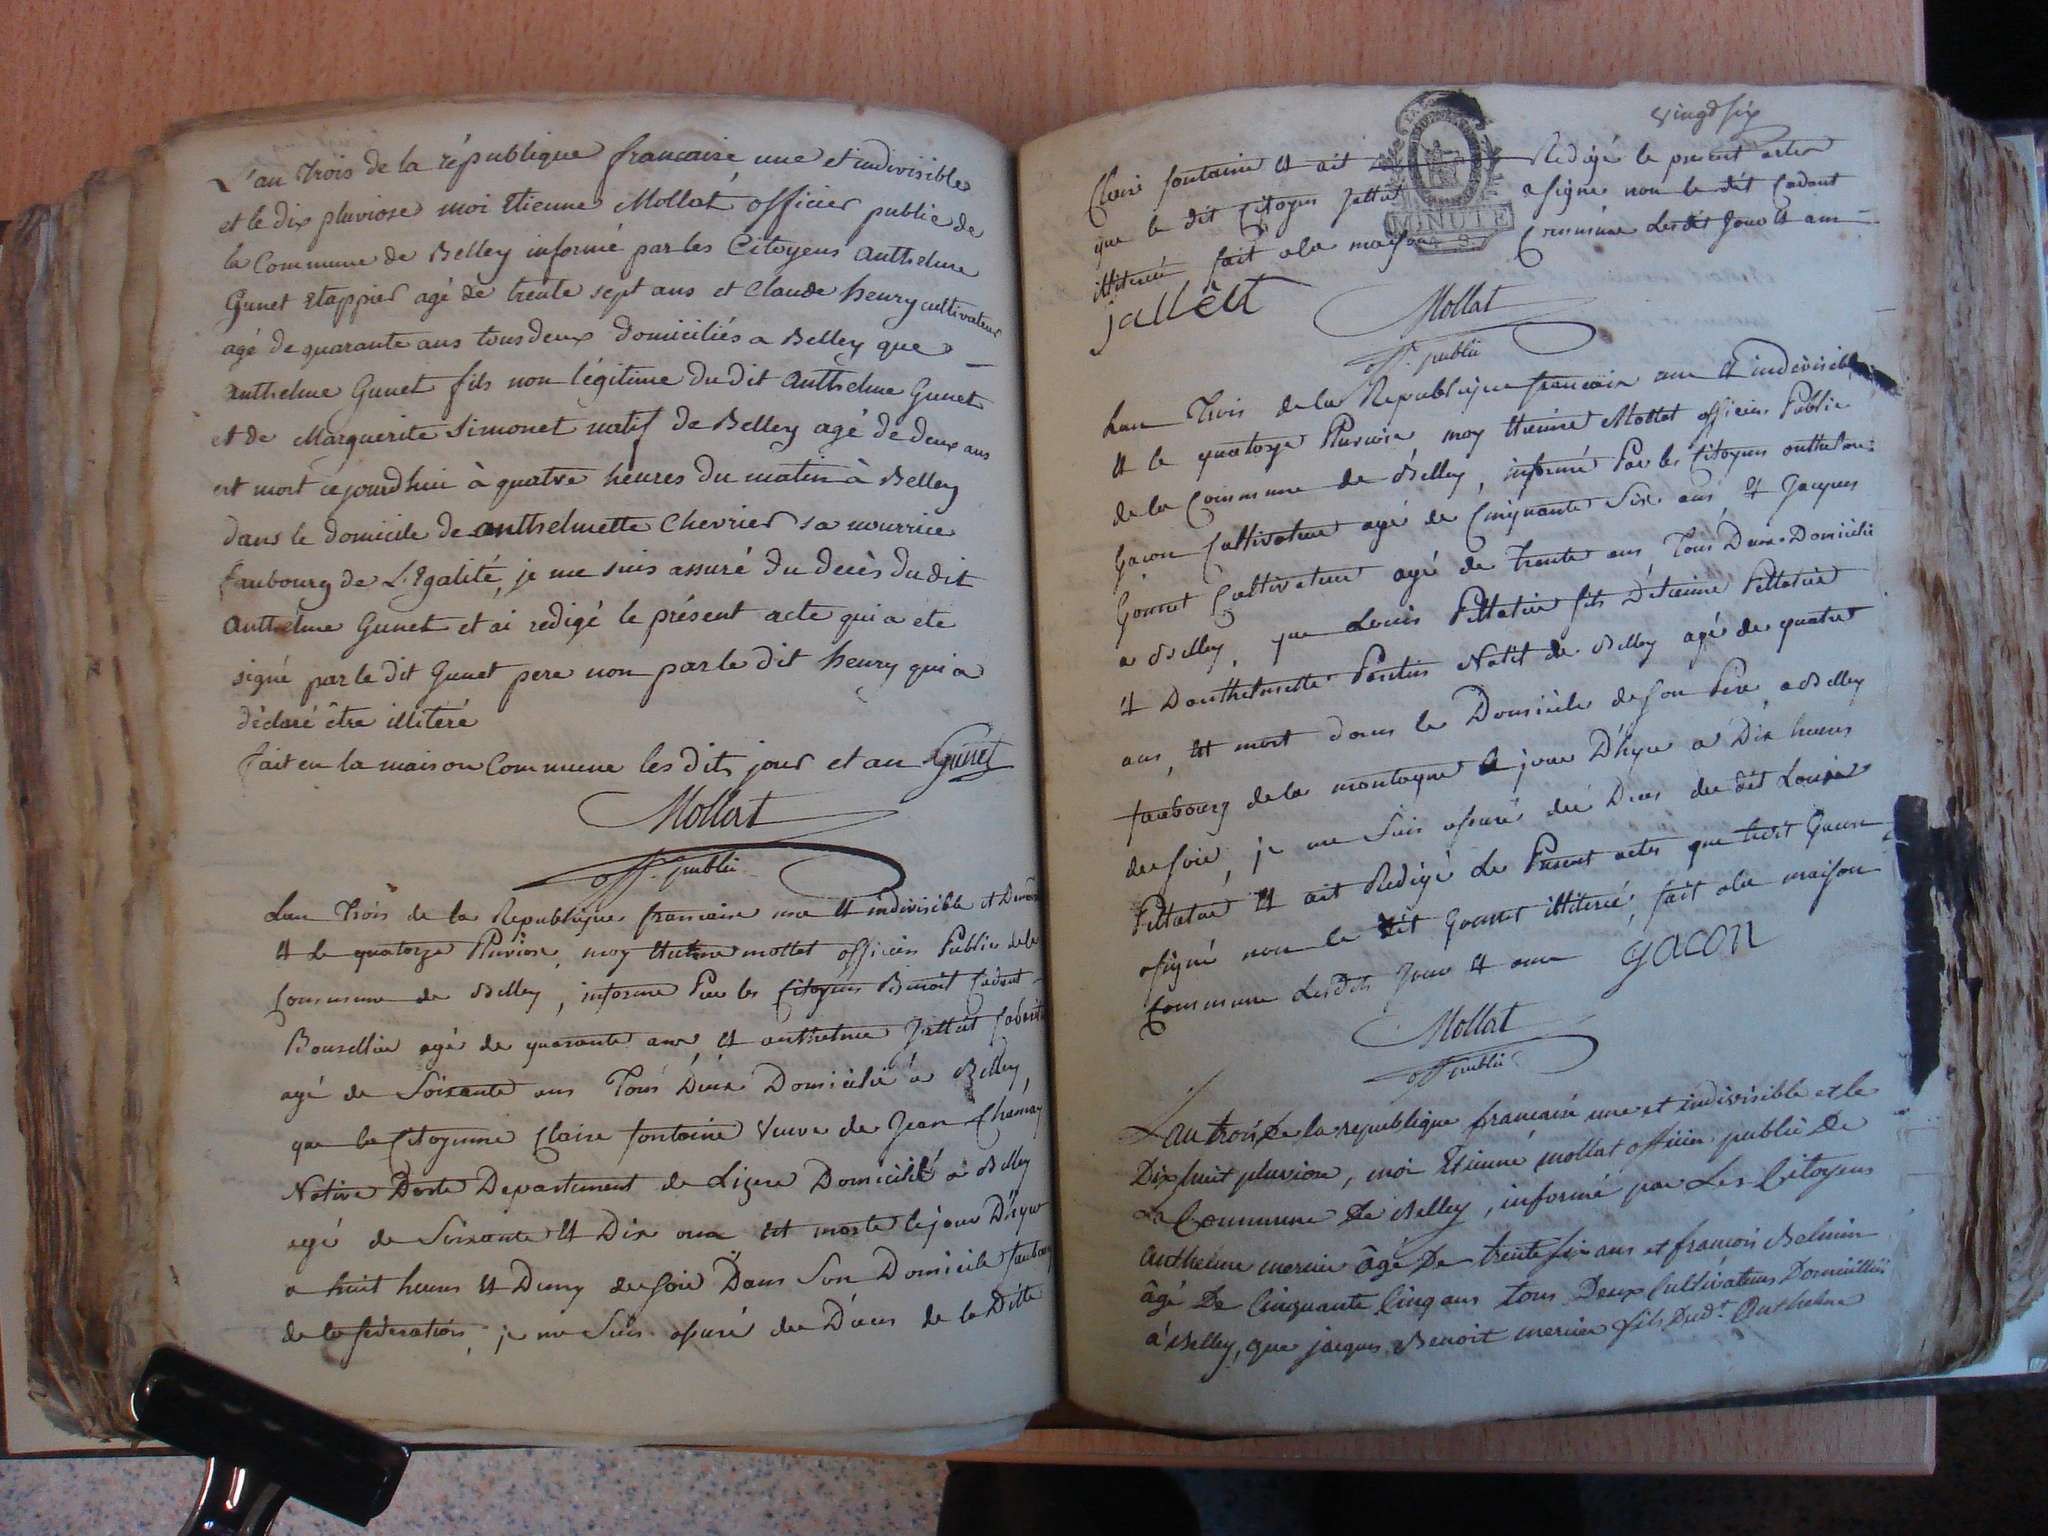 L'an trois de la république francaise une et indivisible
et le dix pluviose moi Etienne Mollat officier public de
la Commune de Belley informé par les Citoyens anthelme
Gunet Etappier agé de trente sept ans et Claude henry cultivateur
agé de quarante ans tous deux domiciliés a Belley que
anthelme Gunet fils non légitime du dit anthelme Gunet
et de Marguerite Simonet natif de Belley agé de deux ans
est mort cejourdhui à quatre heures du matin à Belley
dans le domicile de anthelmette Chevrier sa nourrice
faubourg de L'Egalité, je me suis assuré du decès du dit
anthelme Gunet et ai redigé le présent acte qui a ete
signé par le dit Gunet pere non par le dit henry qui a
déclaré être illitéré
fait en la maison Commune les dits jour et an Gunet
Mollat
off. public
Lan Trois de la Republique francaise une et indivisible
et le quatorze Pluviose, moy Etienne mollat officier Public de la
Commune de Belley, informé Par les Citoyens Benoit Cadont
agé de quarante ans et anthelme Jallet
agé de Soixante ans Tous Deux Domicilié a Belley,
que la Citoyenne Claire fontaine Veuve de Jean
Native Departement de Domicilié a Belley
agé de Soixante et Dix ans est morte le jour D'hyer
a huit heures et Demy du soir Dans Son Domicile faubourg
de la federation, je me Suis assuré du Déces de la Ditte
vingt six
Claire fontaine et ait Redigé le present acte
que le dit Citoyen Jallet a signé non le dit Cadont
illiteré fait a la maison Commune Lesdits Jour et an
MINUTE
jallet
Mollat
off. public
Lan Trois de la Republique francaise une et indivisible
et le quatorze Pluviose moy Etienne Mollat officier Public
de la Commune de Belley, informé Par les Citoyens anthelme
Gacon Cultivateur agé de Cinquante Six ans et Jacques
Gonnet Cultivateur agé de Trente ans, Tous Deux Domicilié
a Belley, que Louis fils D'etienne
et D'anthelmette Natif de Belley agé de quatre
ans, est mort dans le Domicile de son Pere a Belley
faubourg de la montagne le jour D'hyer a Dix heures
du soir, je me Suis assuré du Deces du dit Louis
et ait Redigé Le Present acte, que ledit Gacon
a signé non le dit Gonnet illiteré, fait a la maison
Commune Lesdits Jour et an GACON
Mollat
off public
L'an trois De la republique francaise une et indivisible et le
Dix huit pluviose, moi Etienne mollat officier public De
La Commune De Belley, informé par Les Citoyens
anthelme mercier âgé De trente six ans et francois
âgé De Cinquante Cinq ans tous Deux Cultivateurs Domiciliés
à Belley, que jacques Benoit mercier fils Dud.t Anthelme